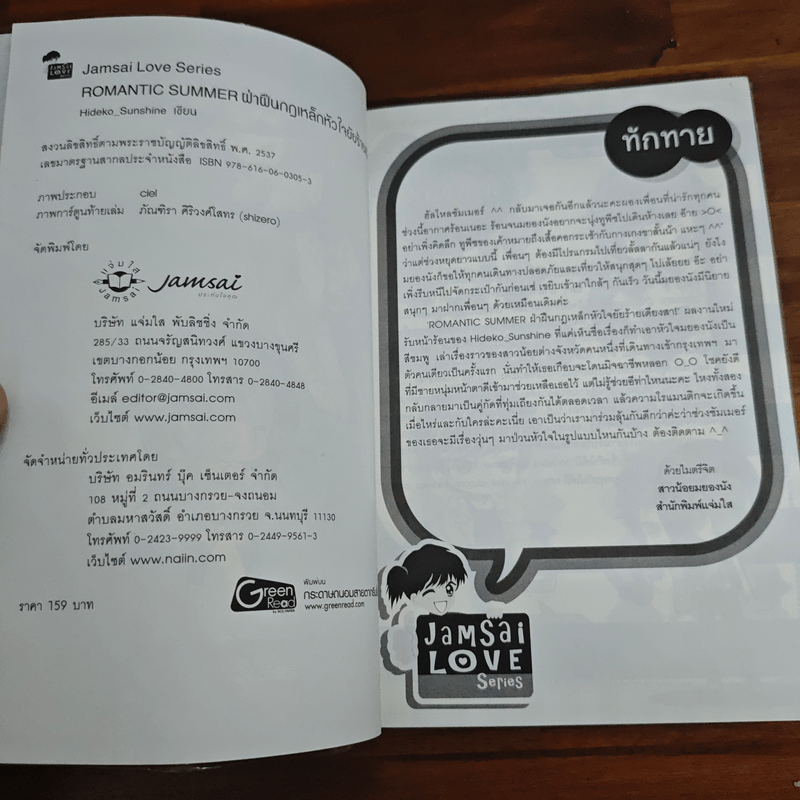 Jamsai Love Series
ROMANTIC SUMMER ฝ่าฝืนกฎเหล็กหัวใจยัยร้าย
Hideko_Sunshine เขียน
สงวนลิขสิทธิ์ตามพระราชบัญญัติลิขสิทธิ์ พ.ศ. 2537
เลขมาตรฐานสากลประจำหนังสือ ISBN 978-616-06-0305-3
ภาพประกอบ ciel
ภาพการ์ตูนท้ายเล่ม ภัณฑิรา ศิริวงศ์โสทร (shizero)
จัดพิมพ์โดย
แจ่มใส
Jamsai
Jamsai
บริษัท แจ่มใส พับลิชชิ่ง จำกัด
285/33 ถนนจรัญสนิทวงศ์ แขวงบางขุนศรี
เขตบางกอกน้อย กรุงเทพฯ 10700
โทรศัพท์ 0-2840-4800 โทรสาร 0-2840-4848
อีเมล์ editor@jamsai.com
เว็บไซต์ www.jamsai.com
จัดจำหน่ายทั่วประเทศโดย
บริษัท อมรินทร์ บุ๊ค เซ็นเตอร์ จำกัด
108 หมู่ที่ 2 ถนนบางกรวย-จงถนอม
ตำบลมหาสวัสดิ์ อำเภอบางกรวย จ.นนทบุรี 11130
โทรศัพท์ 0-2423-9999 โทรสาร 0-2449-9561-3
เว็บไซต์ www.naiin.com
ราคา 159 บาท
Green Read
พิมพ์บน
กระดาษถนอมสายตากรีนรี
www.greenread.com
ทักทาย
ฮัลโหลซัมเมอร์ ^^ กลับมาเจอกันอีกแล้วนะคะผองเพื่อนที่น่ารักทุกคน
ช่วงนี้อากาศร้อนเนอะ ร้อนจนมยองนังอยากจะนุ่งทูพีซไปเดินห้างเลย อ๊าย >O<
อย่าเพิ่งคิดลึก ทูพีซของเค้าหมายถึงเสื้อคอกระเช้ากับกางเกงขาสั้นน้า แหะๆ ^^"
ว่าแต่ช่วงหยุดยาวแบบนี้ เพื่อนๆ ต้องมีโปรแกรมไปเที่ยวลั้ลลากันแล้วแน่ๆ ยังไง
มยองนังก็ขอให้ทุกคนเดินทางปลอดภัยและเที่ยวให้สนุกสุดๆ ไปเล้ยยย อ๊ะ อย่า
เพิ่งรีบหนีไปจัดกระเป๋ากันก่อนเซ่ เขยิบเข้ามาใกล้ๆ กันเร็ว วันนี้มยองนังมีนิยาย
สนุกๆ มาฝากเพื่อนๆ ด้วยเหมือนเดิมค่ะ
'ROMANTIC SUMMER ฝ่าฝืนกฎเหล็กหัวใจยัยร้ายเดียงสา!' ผลงานใหม่
รับหน้าร้อนของ Hideko_Sunshine ที่แค่เห็นชื่อเรื่องก็ทำเอาหัวใจมยองนังเป็น
สีชมพู เล่าเรื่องราวของสาวน้อยต่างจังหวัดคนหนึ่งที่เดินทางเข้ากรุงเทพฯ มา
ตัวคนเดียวเป็นครั้งแรก นั่นทำให้เธอเกือบจะโดนมิจฉาชีพหลอก O_O โชคยังดี
ที่มีชายหนุ่มหน้าตาดีเข้ามาช่วยเหลือเธอไว้ แต่ไม่รู้ช่วยอีท่าไหนนะคะ ไหงทั้งสอง
กลับกลายมาเป็นคู่กัดที่ทุ่มเถียงกันได้ตลอดเวลา แล้วความโรแมนติกจะเกิดขึ้น
เมื่อไหร่และกับใครล่ะคะเนี่ย เอาเป็นว่าเรามาร่วมลุ้นกันดีกว่าค่ะว่าช่วงซัมเมอร์
ของเธอจะมีเรื่องวุ่นๆ มาป่วนหัวใจในรูปแบบไหนกันบ้าง ต้องติดตาม ^_^
ด้วยไมตรีจิต
สาวน้อยมยองนัง
สำนักพิมพ์แจ่มใส
JAMSAI
LOVE
Series